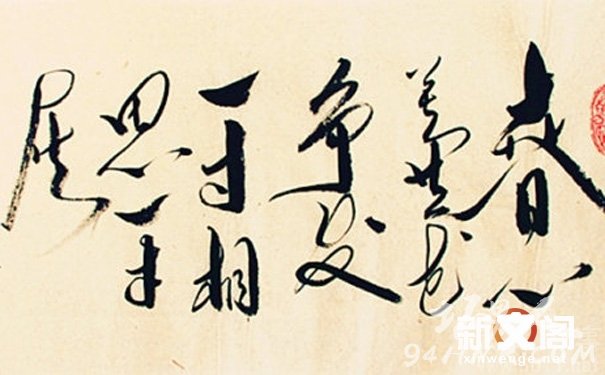 春心
莫共花
争发
一寸相
思一寸
灰
新文阁
xinwenge.net